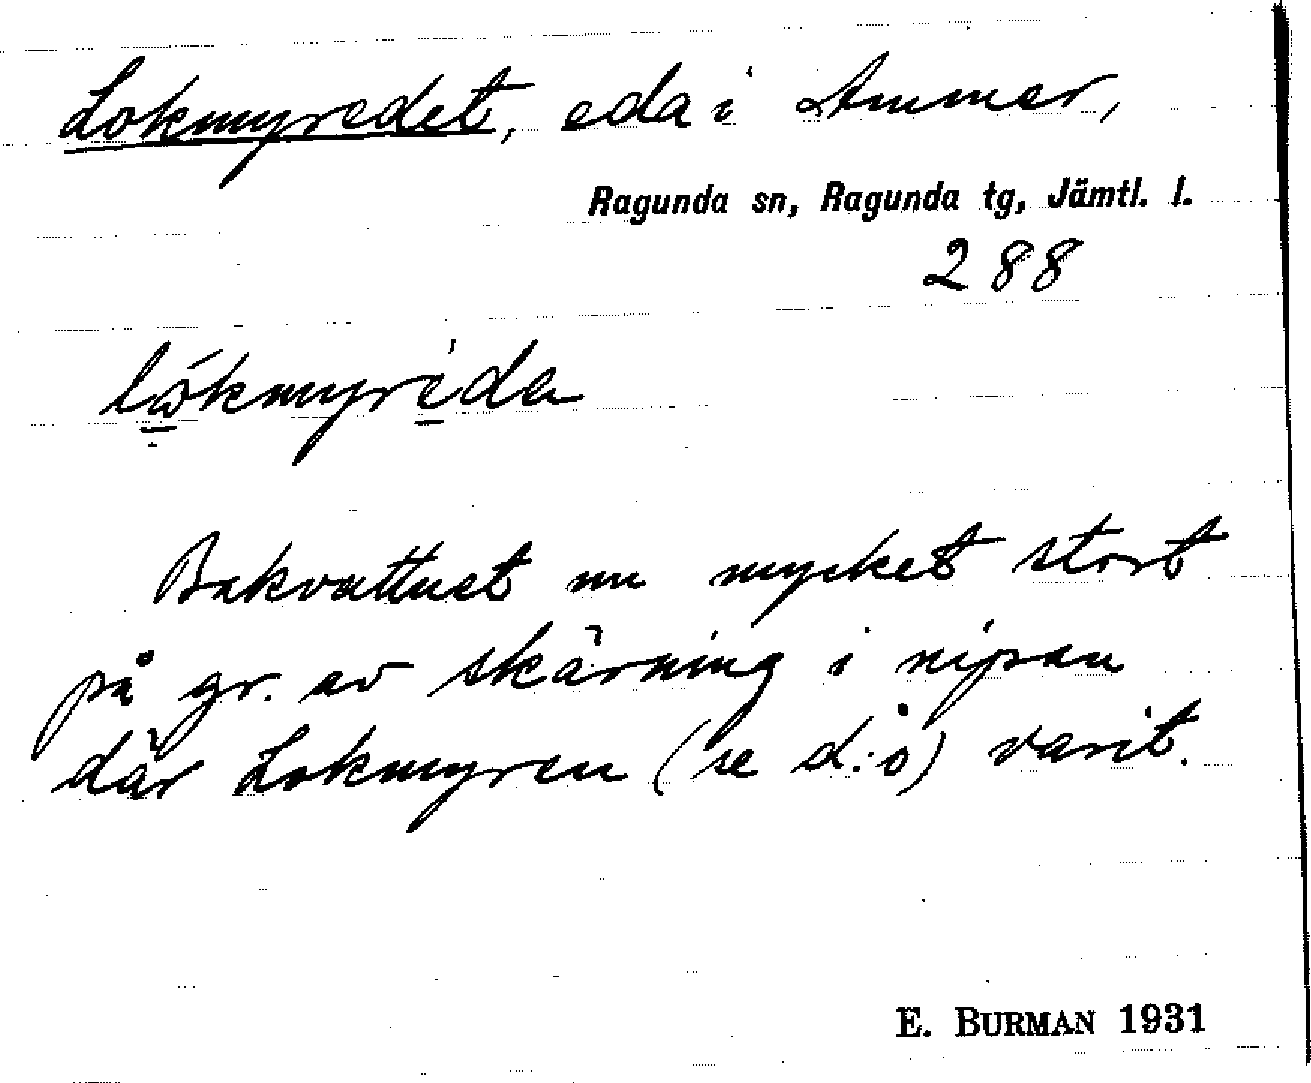 Lokmyredet, eda i Ammer,
Ragunda sn, Ragunda tg, Jämtl. l.
288
lòkmyrèda
Bakvattnet nu mycket stort
på gr. av skärning i nipan
där Lokmyren (se d:o) varit.
E. BURMAN 1931